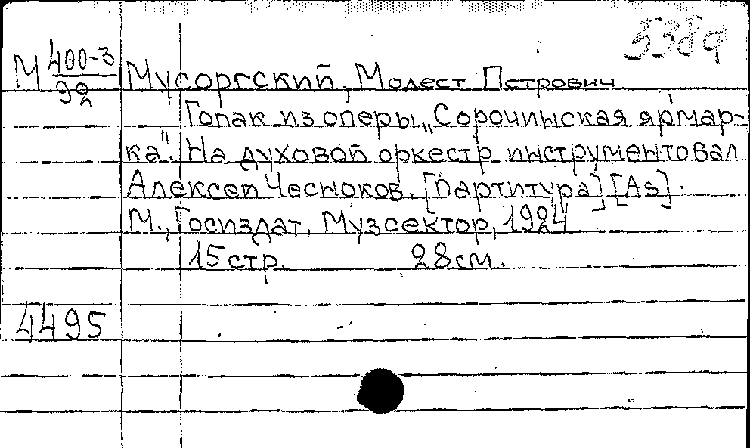 5389
М 400-3/92 Мусоргский, Модест Петрович
Гопак из оперы „Сорочинская ярмар-
ка". На духовой оркестр инструментовал
Алексей Чесноков. [Партитура] [As].
М., Госиздат, Музсектор, 1924
15 стр. 28 см.
4495